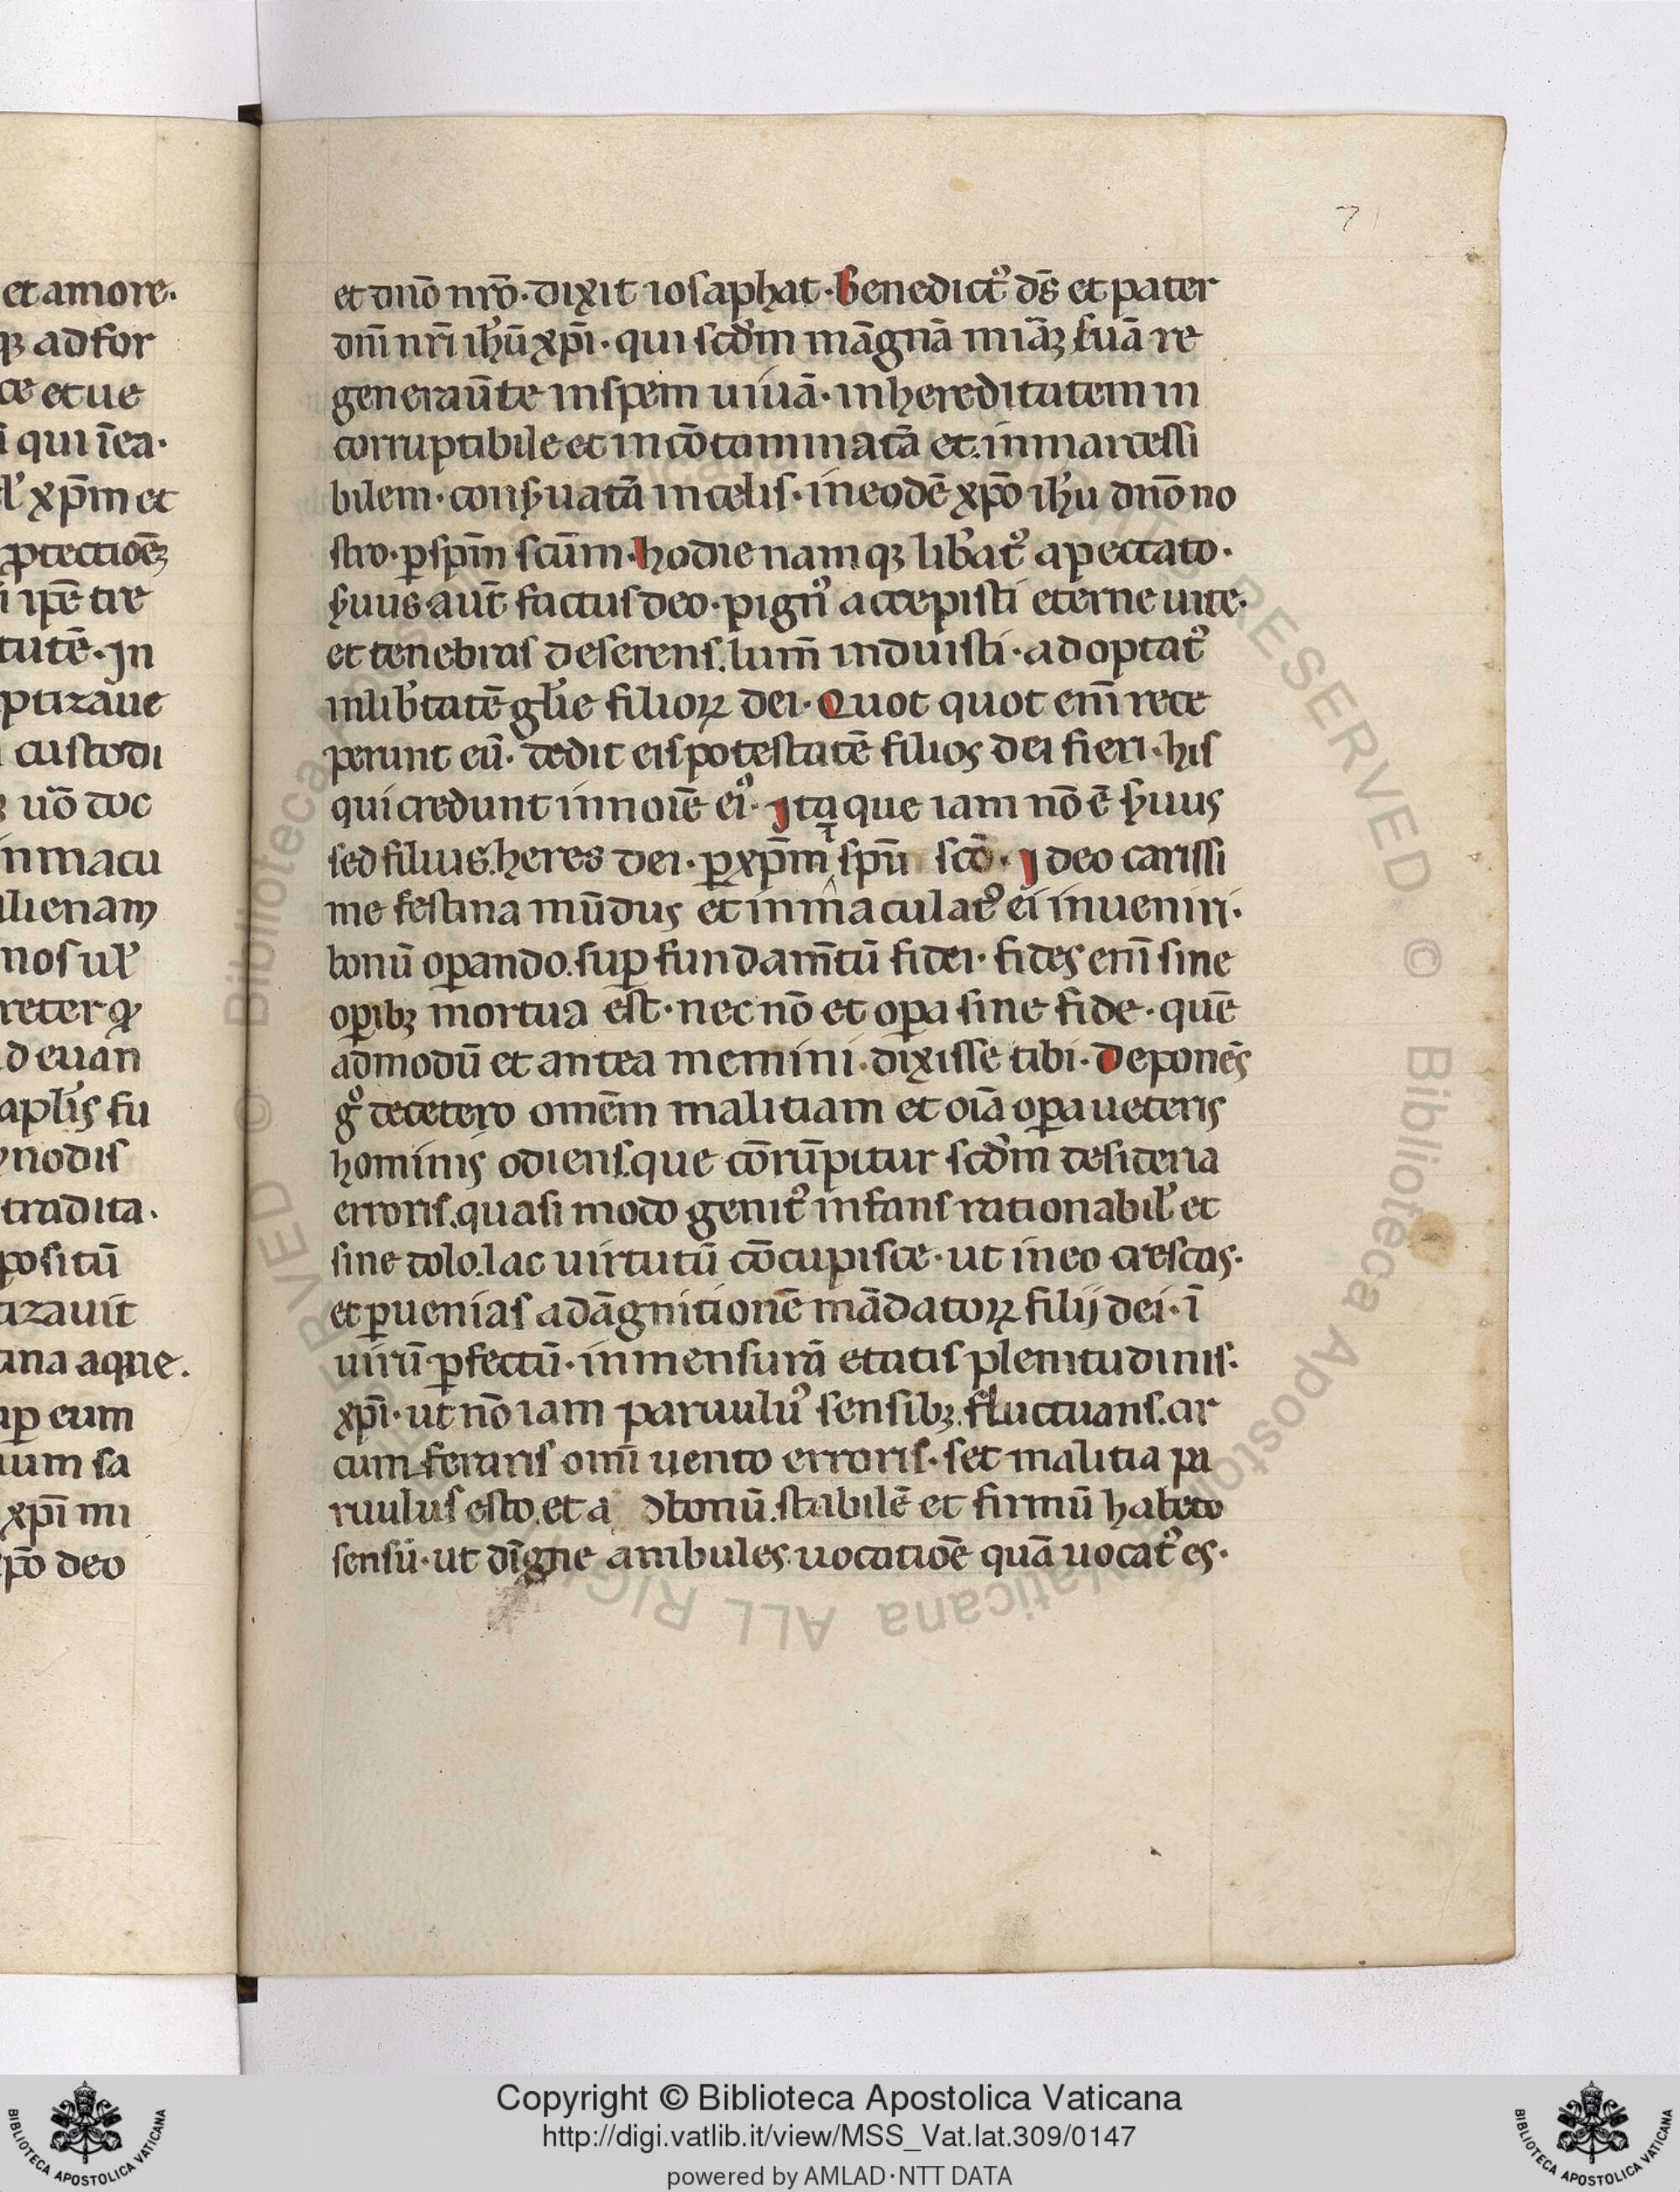 7
et amore.
qꝫ ad for
ce et ue
i qui īea.
xp̄m et
ꝓtectioēꝫ
ip̄e tir
tutē. In
ptizaue
custodi
uō doc
nmacu
lienam
nos ul᷑
reter qͥ
d euan
apl̓is fu
nodis
tradita.
positū
tizauit
ana aque.
up̲ eum
uum sa
xp̄i mi
pō deo
et dn̄o nr̄o. dixit iosaphat. Benedict᷒ ds̄ et pater
dn̄i nr̄i ih̓ū xp̄i. qui scd̓m māgnā miāꝫ suā re
generaūte in spem uiuā. in hereditatem in
corruptibile et incōtaminatā et inmarcessi
bilem. cons̓uatā in celis. in eodē xp̄o ih̓u dn̄o no
stro. ꝑ sp̄m scūm. hodie namqꝫ lib̓at᷒ a peccato.
s̓uus aut̄ factus deo. pign᷒ accepisti eterne uite.
et tenebras deserens. lum̄ induisti. adoptat᷒
in lib̓tatē gl̓ie filioꝝ dei. Quot quot eni̅ rece
perunt eū. dedit eis potestatē filios dei fieri. his
qui credunt in noīe ei᷒. Itaque iam nō ē s̓uus
sed filius. heres dei. ꝑ xp̄m ⁊ spū scō. Ideo carissi
me festina mūdus et inmaculat᷒ ei inueniri.
bonū oꝑando. suꝑ fundam̄tū fidei. fides eni̅ sine
oꝑibꝫ mortua est. nec nō et oꝑa sine fide. quē
admodū et antea memini dixisse tibi. Deponēs
g᷒ decetero omēm malitiam et oīa oꝑa ueteris
hominis odiens. que cōrūpitur scd̓m desideria
erroris. quasi modo genit᷒ infans rationabil̓ et
sine dolo. lac uirtutū cōcupisce. ut in eo crescas.
et ꝑuenias ad āgnitionē mādatoꝝ filij dei. ī
uirū ꝑfectū. in mensurā etatis plenitudinis.
xp̄i. ut nō iam paruulu᷒ sensibꝫ. fluctuans. cir
cum feraris omī uento erroris. set malitia pa
ruulus esto. et a d bonū. stabilē et firmū habeto
sensū. ut dīgne ambules uocatiōe quā uocat᷒ es.
Copyright © Biblioteca Apostolica Vaticana
http://digi.vatlib.it/view/MSS_Vat.lat.309/0147
powered by AMLAD·NTT DATA
BIBLIOTECA APOSTOLICA VATICANA
BIBLIOTECA APOSTOLICA VATICANA